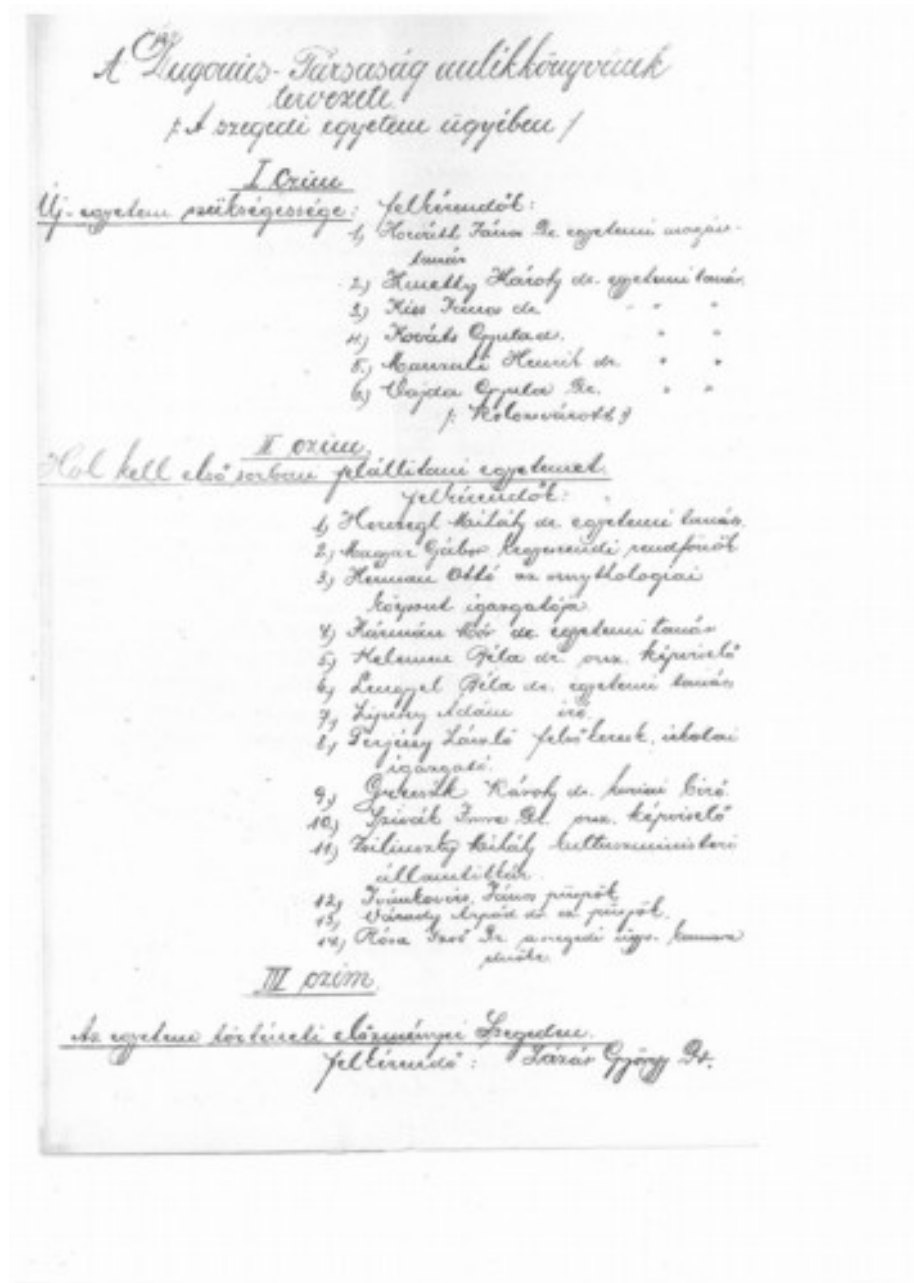 A Dugonics-Társaság emlékkönyvének
tervezete.
/: A szegedi egyetem ügyében /
I Czim
Új-egyetem szükségessége: felkérendők:
1, Horváth János Dr. egyetemi magán-
tanár
2.) Kmetty Károly dr. egyetemi tanár.
3.) Kiss János dr. " " "
4.) Kováts Gyula d. " "
5.) Marczali Henrik dr. " "
6.) Vajda Gyula Dr. " "
/: Kolozsvárott :/
II czim.
Hol kell első sorban felállitani egyetemet.
felkérendők:
1, Herczegh Mihály dr. egyetemi tanár.
2.) Magyar Gábor kegyesrendi rendfőnök
3, Herman Ottó az ornythologiai
központ igazgatója
4) Kármán Mór dr. egyetemi tanár
5) Kelemen Béla dr. orsz. képviselő
6, Lengyel Béla dr. egyetemi tanár
7, Lipcsey Ádám iró.
8, Perjéssy László felső keresk. iskolai
igazgató.
9,) Károly dr. kuriai biró.
10) Szivák Imre Dr. orsz. képviselő
11) Zsilinszky Mihály kultuszministeri
államtitkár.
12, Ivánkovits János püspök
13, Várady Árpád dr. cz. püspök.
14) Rósa Izsó Dr. a szegedi ügyv. kamara
elnöke.
III czim.
Az egyetem történeti előzményei Szegeden.
felkérendő: Lázár György Dr.